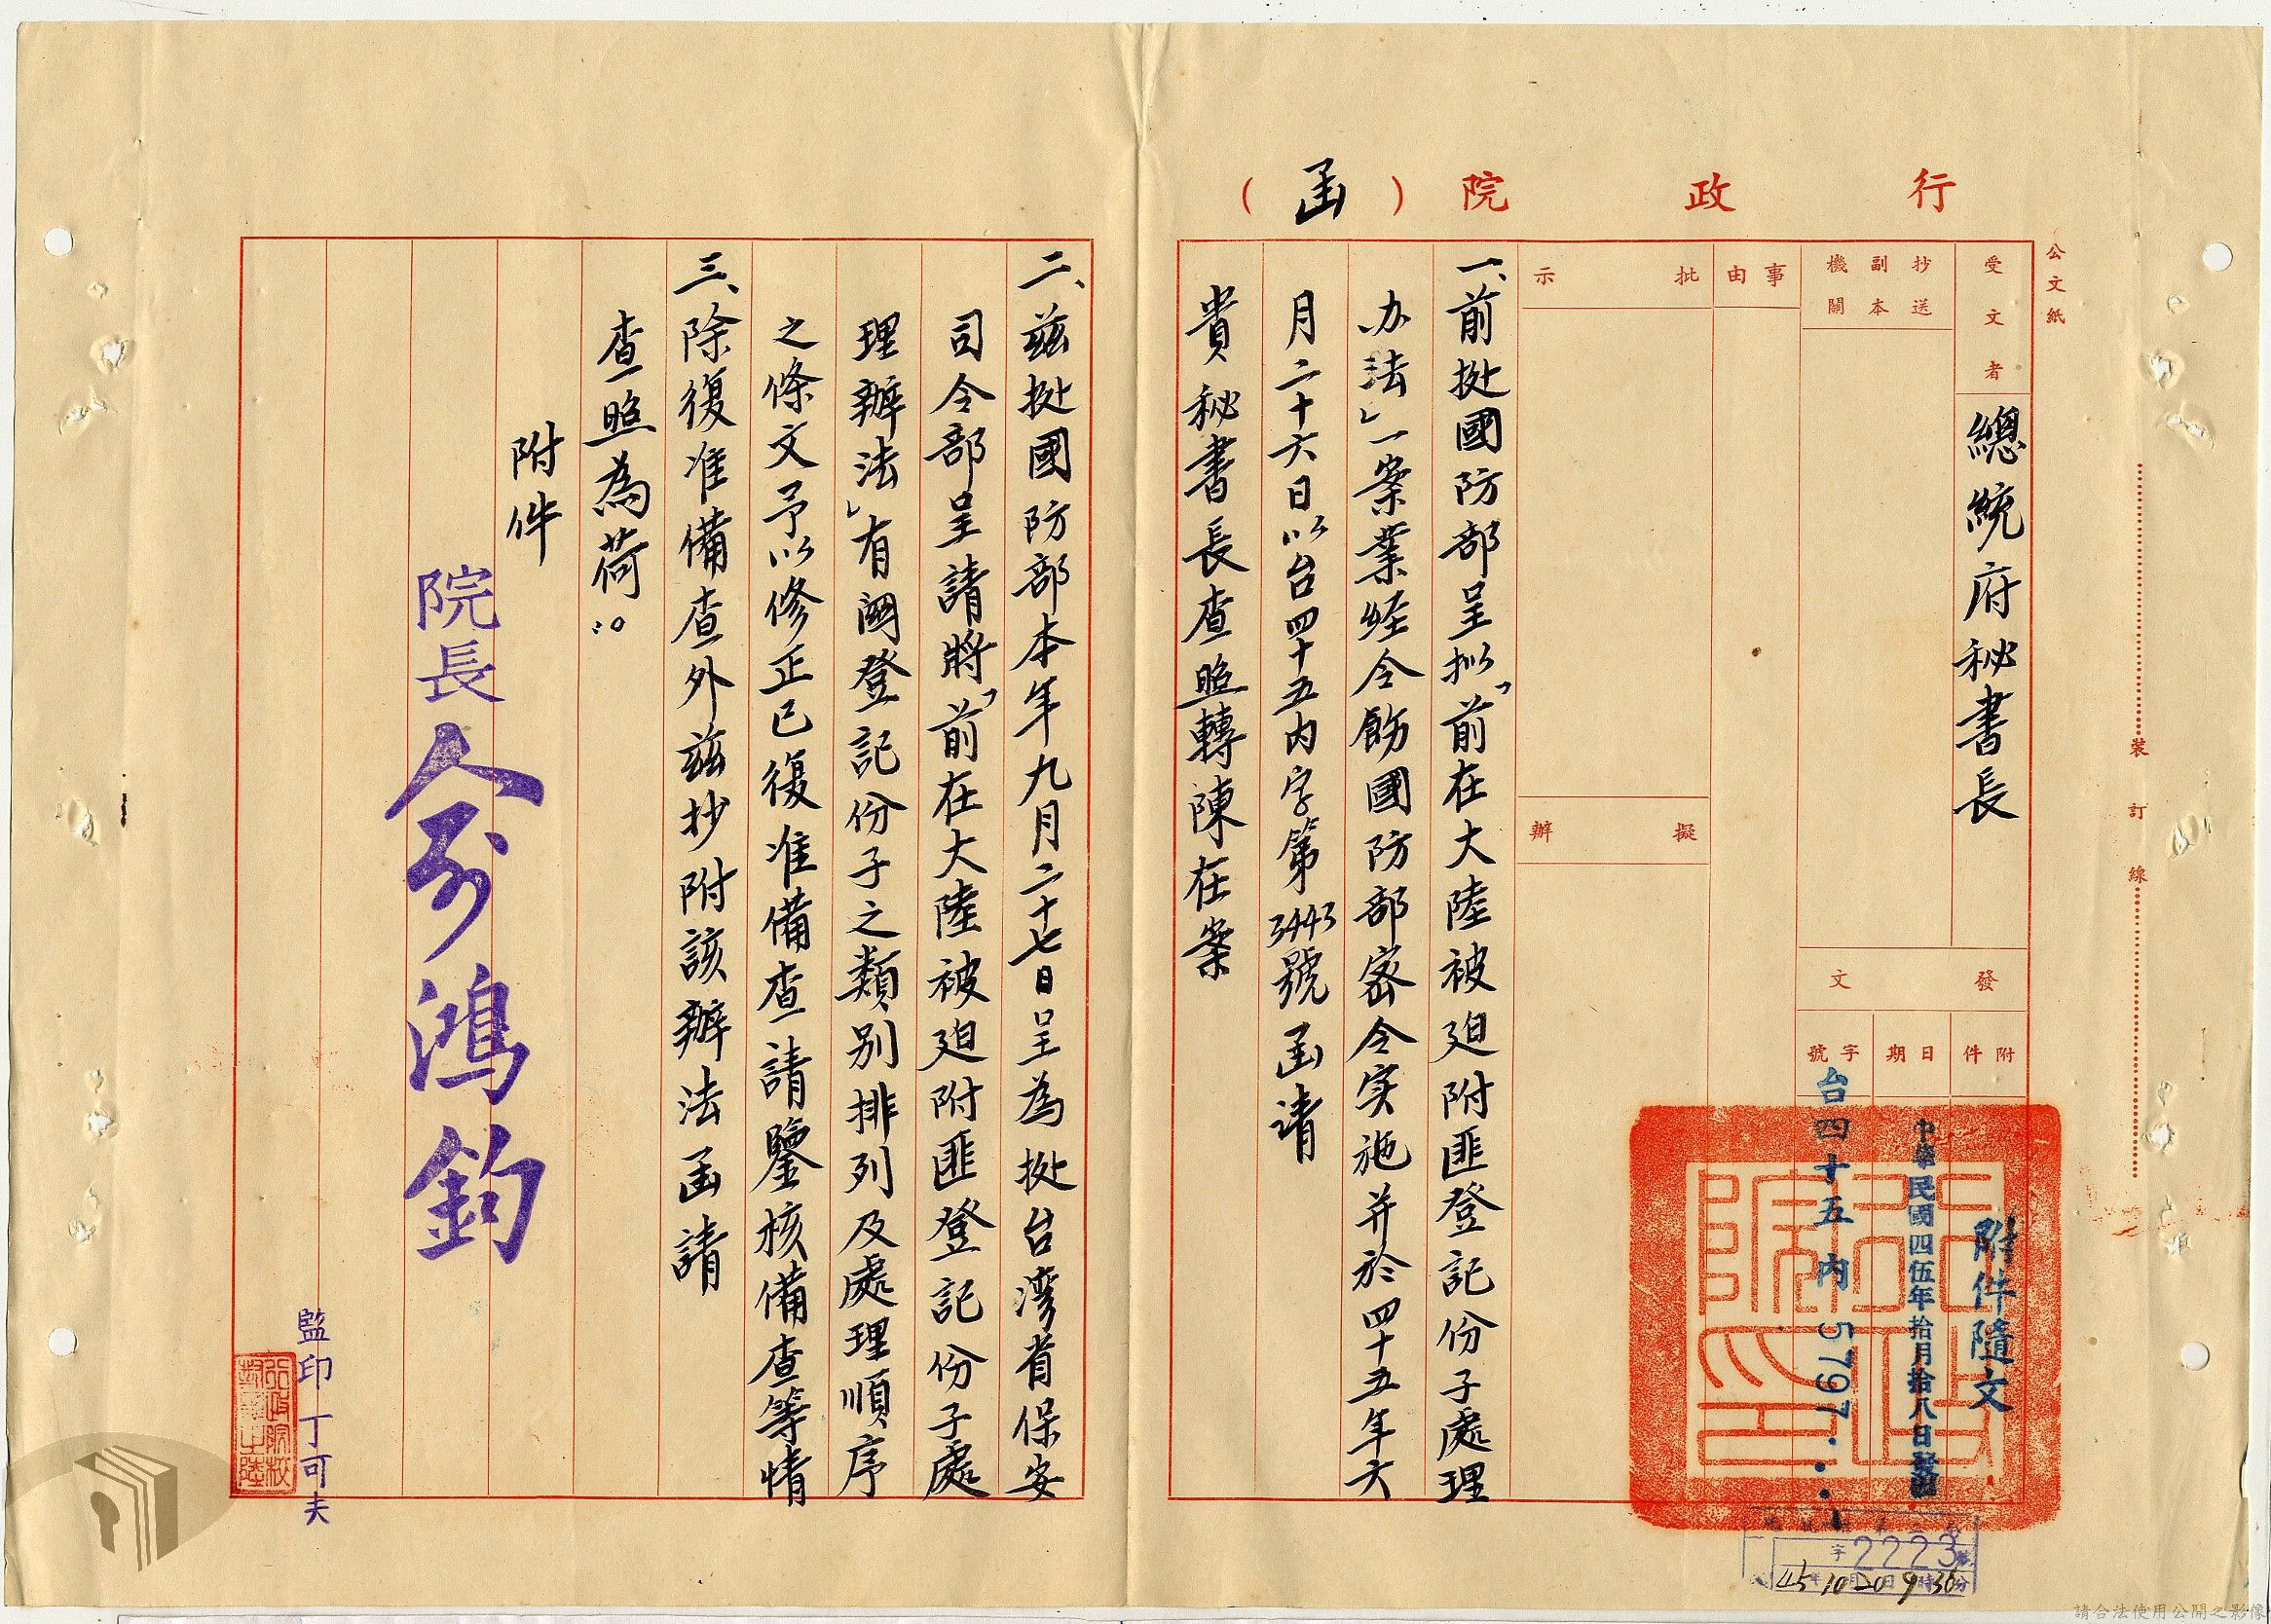 公文紙
行政院（函）
受文者
總統府秘書長
抄送副本機關
事由
批示
擬辦
發文
附件
附件隨文
日期
中華民國四伍年拾月拾八日發出
字號
台四十五內5797
一、前挺國防部呈拟「前在大陸被迫附匪登記份子處理
办法」一案業经令飭國防部密令实施并於四十五年六
月二十六日以台四十五内字第3443號函请
貴秘書長查照轉陳在案
二、兹挺國防部本年九月二十七日呈為挺台湾省保安
司令部呈請將「前在大陸被迫附匪登記份子處
理辦法」有関登記份子之類別排列及處理順序
之條文予以修正已復准備查請鑒核備查等情
三、除復准備查外兹抄附該辦法函請
查照為荷
附件
院長俞鴻鈞
監印丁可夫
裝訂線
字2223號
45年10月20日9時30分
請合法使用公開之影像